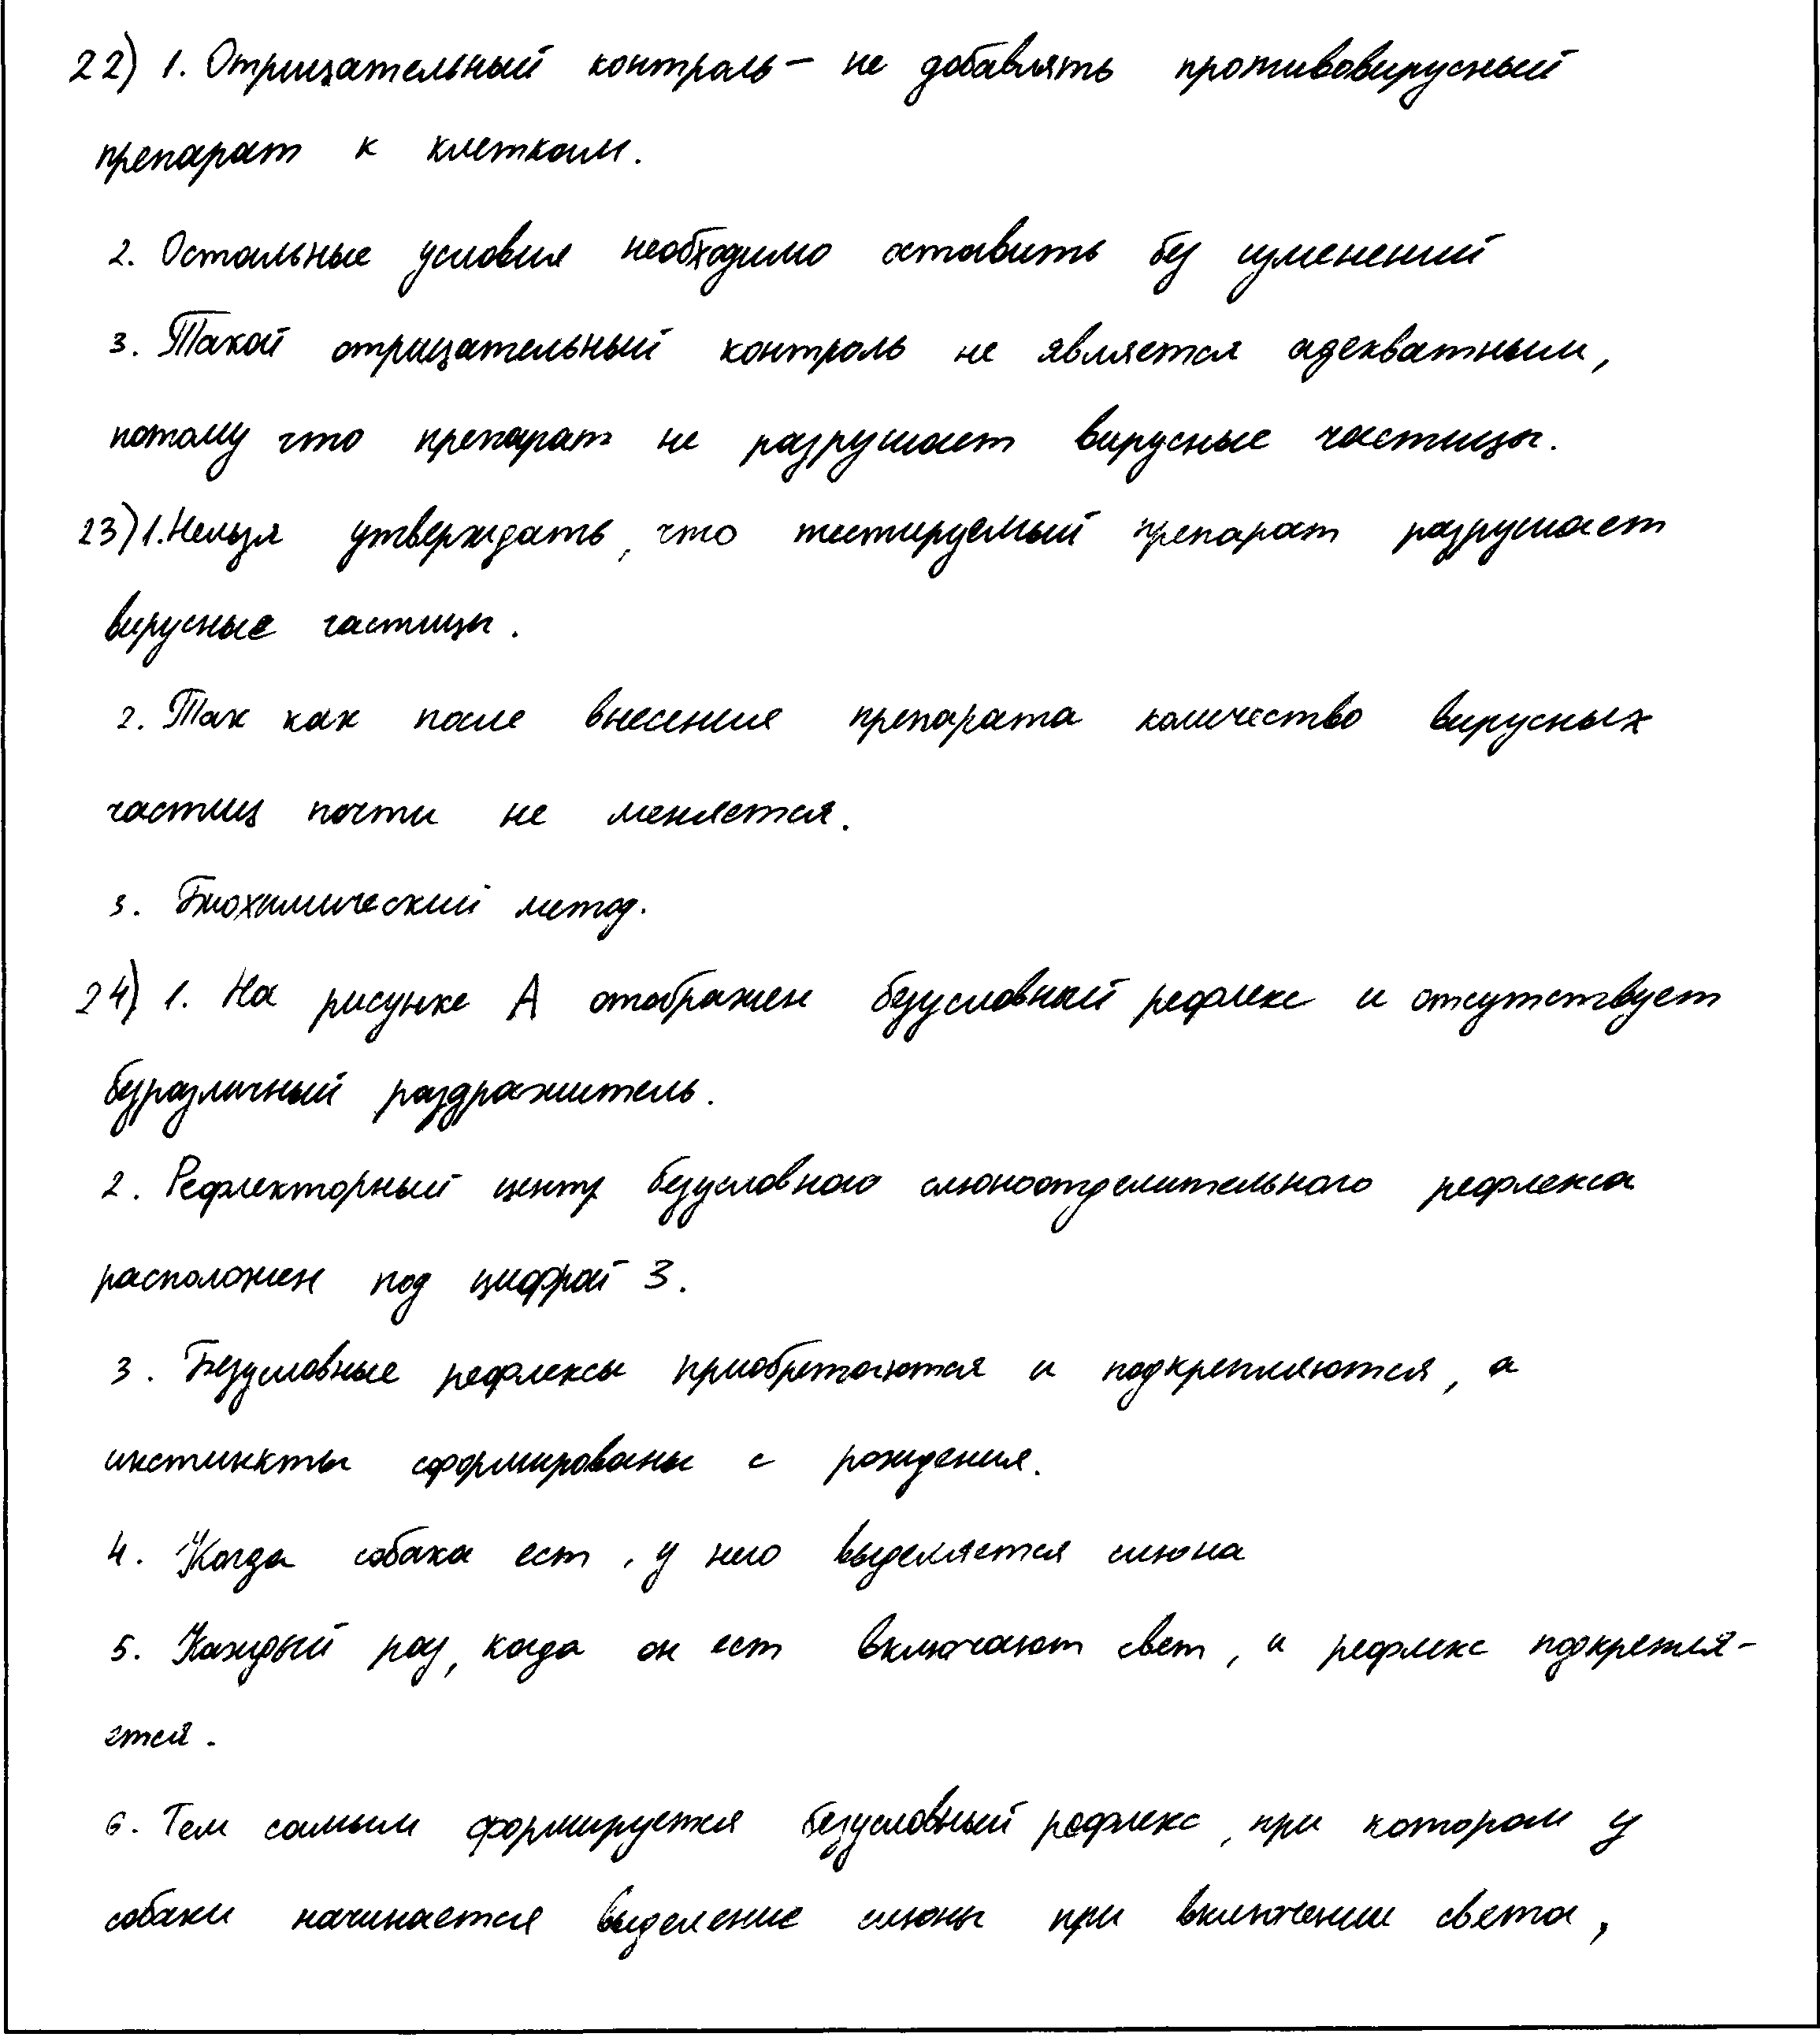 22) 1. Отрицательный контроль – не добавлять противовирусный
препарат к клеткам.
2. Остальные условия необходимо оставить без изменений
3. Такой отрицательный контроль не является адекватным,
потому что препарат не разрушает вирусные частицы.
23) 1. Нельзя утверждать, что тестируемый препарат разрушает
вирусные частицы.
2. Так как после внесения препарата количество вирусных
частиц почти не меняется.
3. Биохимический метод.
24) 1. На рисунке А отображен безусловный рефлекс и отсутствует
безразличный раздражитель.
2. Рефлекторный центр безусловного слюноотделительного рефлекса
расположен под цифрой 3.
3. Безусловные рефлексы приобретаются и подкрепляются, а
инстинкты сформированы с рождения.
4. Когда собака ест, у него выделяется слюна
5. Каждый раз, когда он ест включают свет, и рефлекс подкрепля-
ется.
6. Тем самым формируется безусловный рефлекс, при котором у
собаки начинается выделение слюны при включении света,